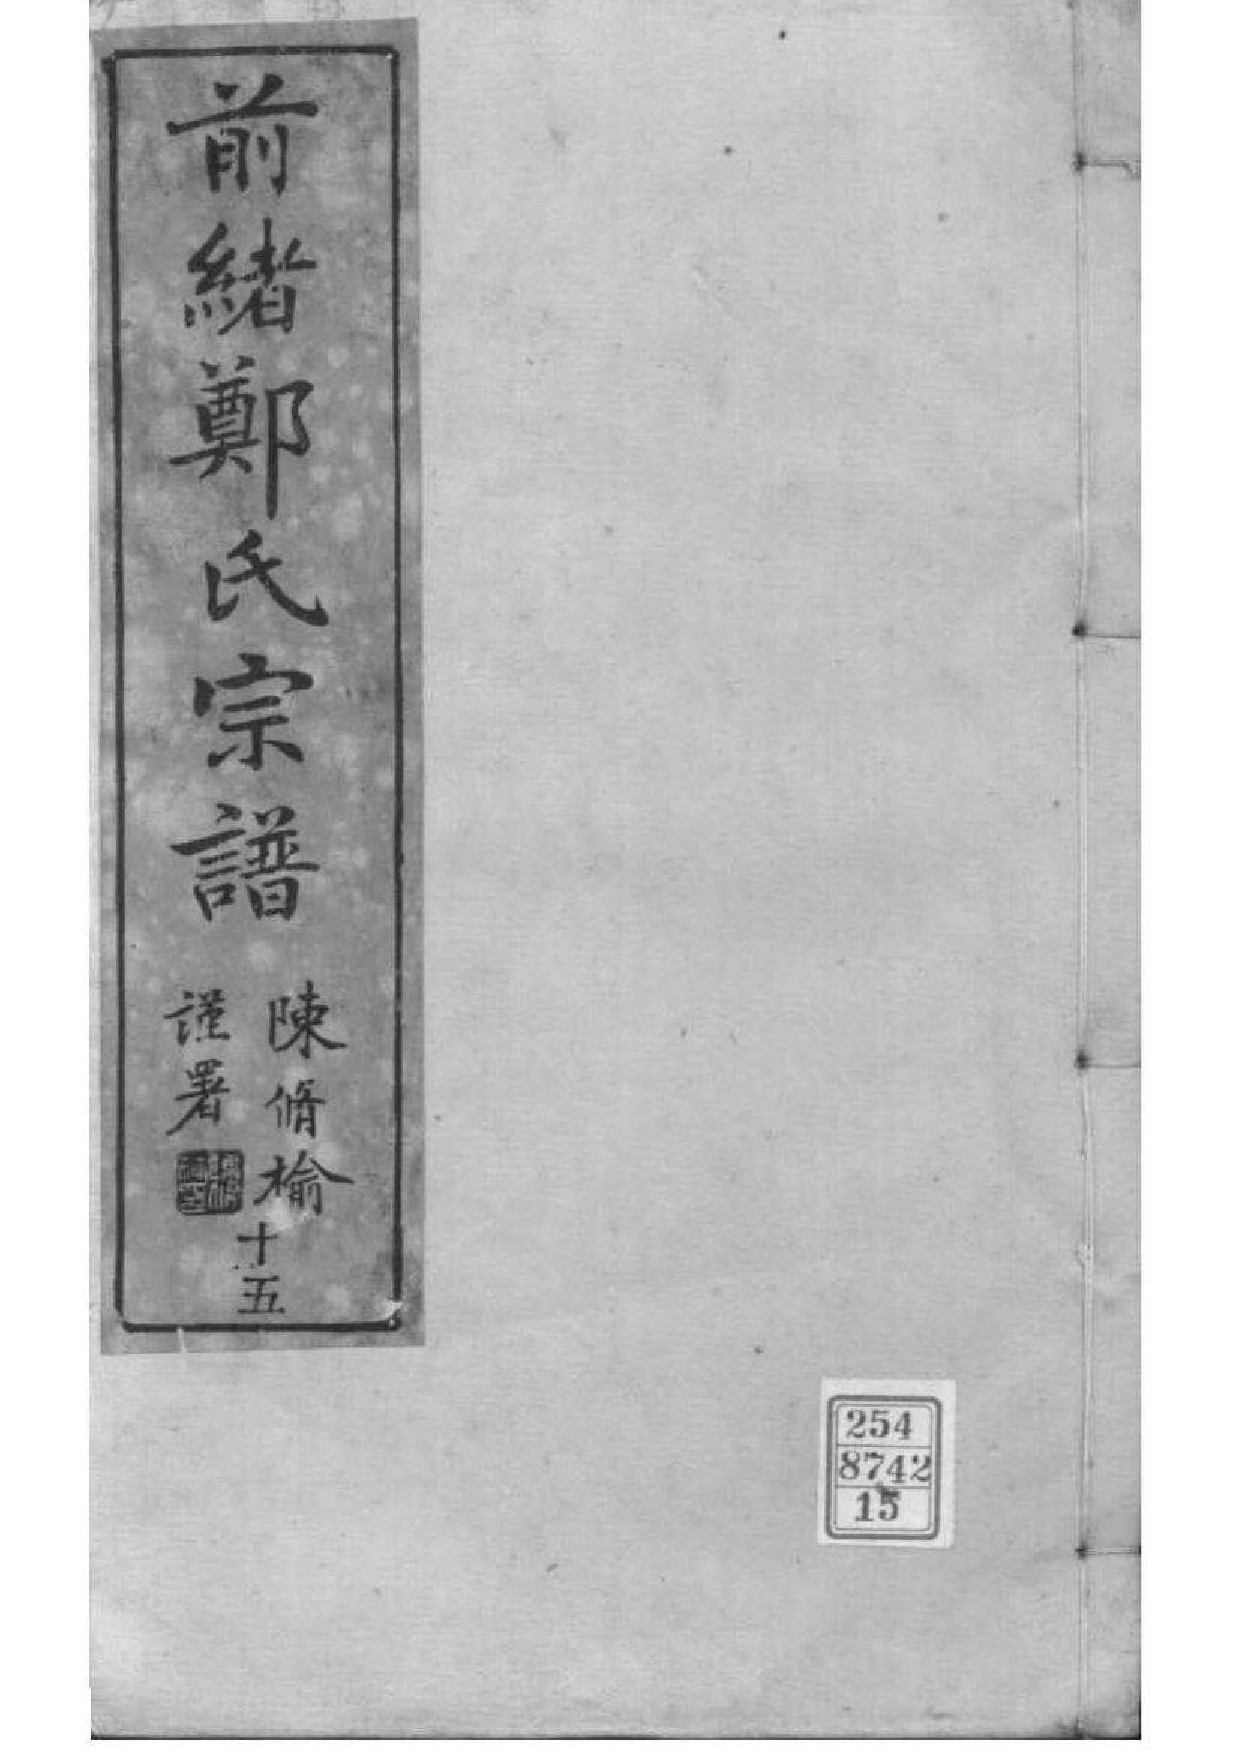 前緒鄭氏宗譜
陳脩榆
謹署
十五
254
8742
15